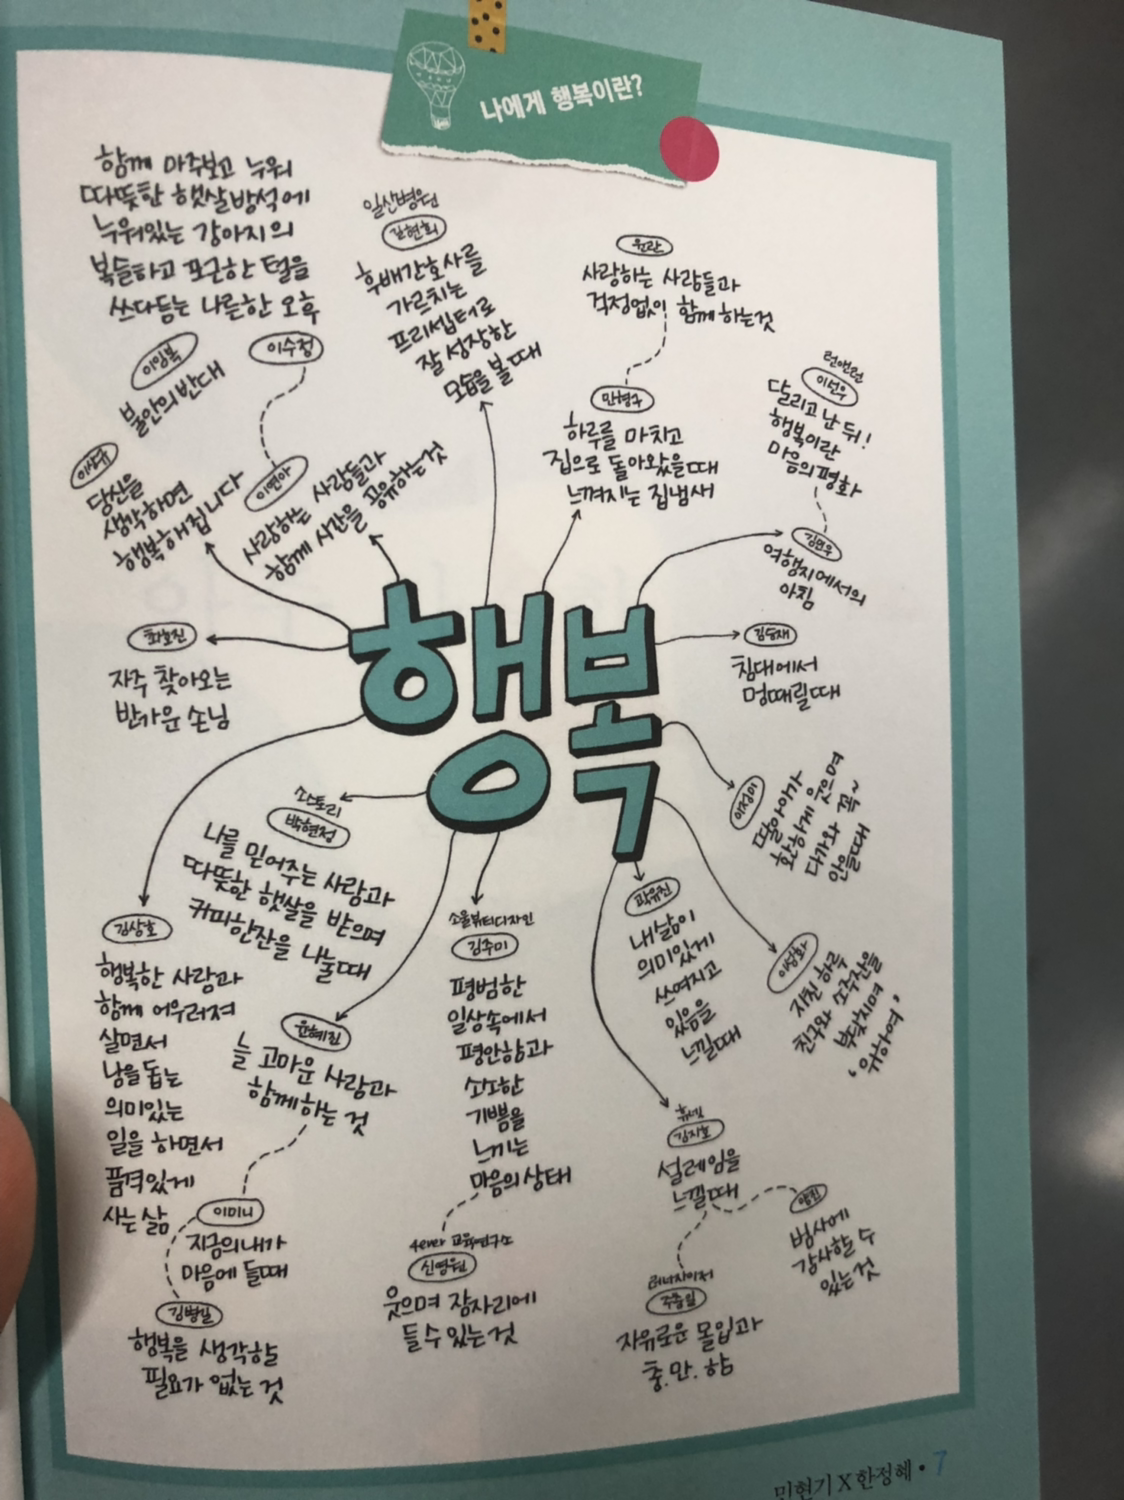 나에게 행복이란?
함께 마주보고 누워
따뜻한 햇살방석에
누워있는 강아지의
복슬하고 포근한 털을
쓰다듬는 나른한 오후
이수정
일산병원
김현희
후배간호사를
가르치는
프리셉터로
잘 성장한
모습을 볼 때
원란
사랑하는 사람들과
걱정없이 함께 하는것
민형구
하루를 마치고
집으로 돌아왔을때
느껴지는 집냄새
런앤런
이선우
달리고 난 뒤!
행복이란
마음의 평화
김연우
여행지에서의
아침
이임복
불안의 반대
이상규
당신을
생각하면
행복해집니다
이연아
사랑하는 사람들과
함께 시간을 공유하는것
행복
최호진
자주 찾아오는
반가운 손님
김승재
침대에서
멍때릴때
이정이
딸아이가
환하게 웃으며
다가와 꼭~
안을때
소스토리
박현정
나를 믿어주는 사람과
따뜻한 햇살을 받으며
커피한잔을 나눌때
김상호
행복한 사람과
함께 어우러져
살면서
남을 돕는
의미있는
일을 하면서
품격있게
사는 삶
윤혜진
늘 고마운 사람과
함께하는 것
소울뷰티디자인
김주미
평범한
일상속에서
평안함과
소소한
기쁨을
느끼는
마음의 상태
곽유진
내 삶이
의미있게
쓰여지고
있음을
느낄때
이성화
지친 하루
친구와 소주잔을
부딪치며
'위하여'
휴넷
김지호
설레임을
느낄때
앨린
범사에
감사할 수
있는것
이미니
지금의 내가
마음에 들때
김병일
행복을 생각할
필요가 없는 것
4ever 교육연구소
신영원
웃으며 잠자리에
들 수 있는 것
에너자이저
주충일
자유로운 몰입과
충.만.함
민현기 X 한정혜 • 7